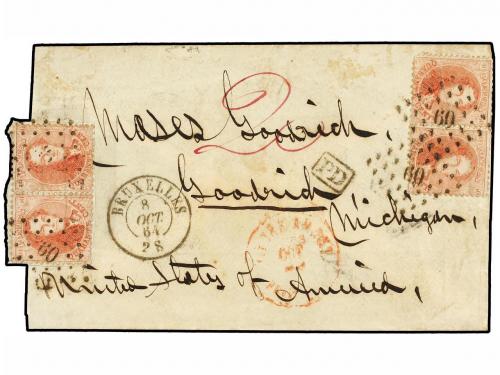 2
Moses Goodrich,
Goodrich
Michigan,
United States of America,
PD
BRUXELLES
8
OCT
64
2S
60
60
60